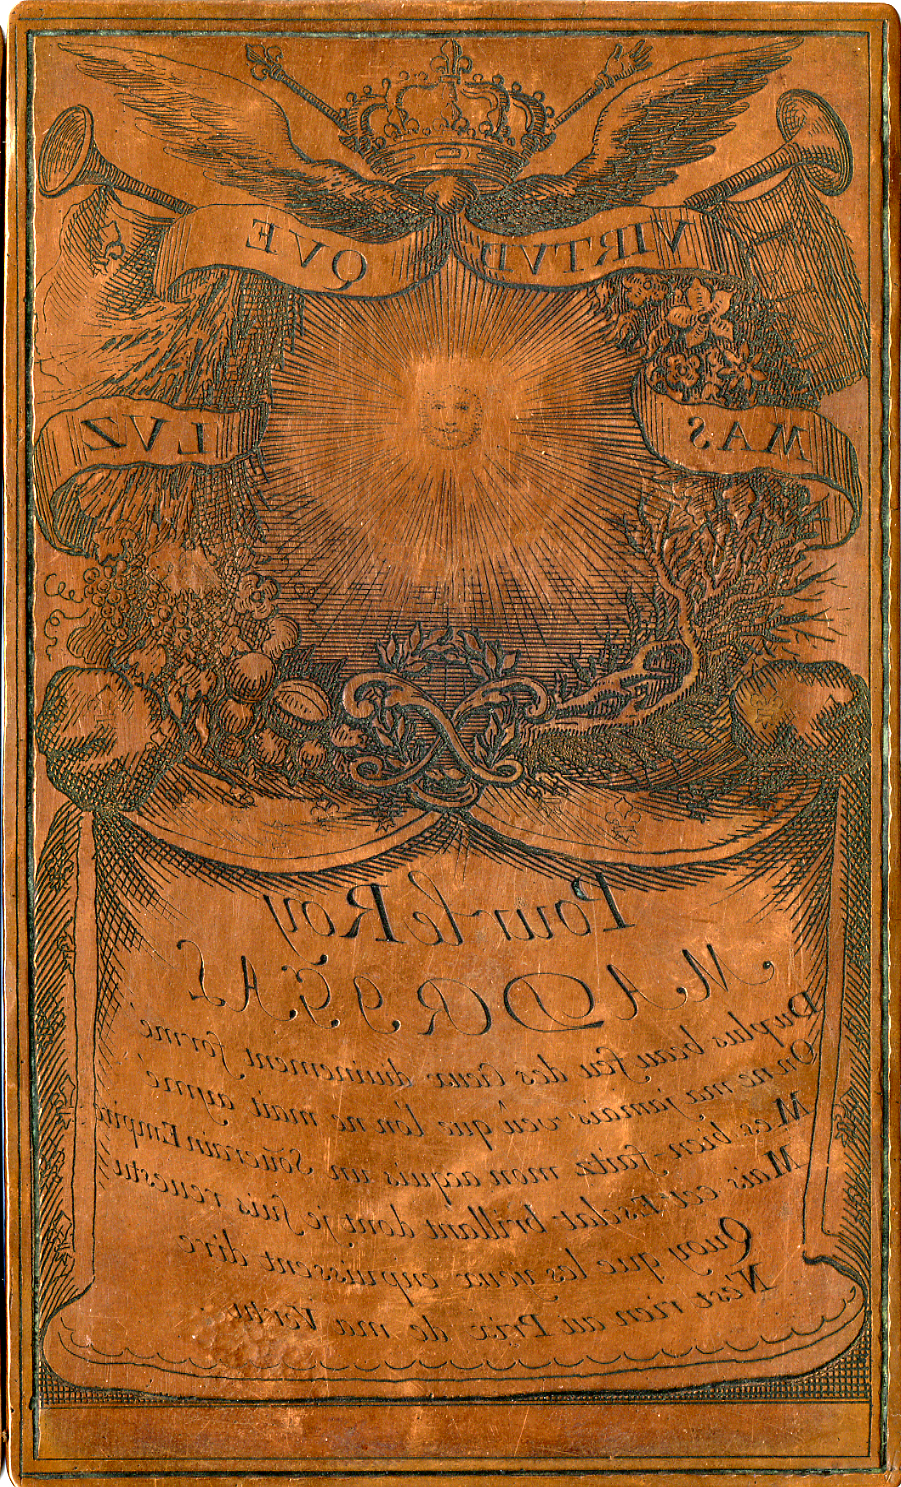 VIRTVD QVE
MAS LVZ
Pour le Roy
MADRIGAL
Du plus beau feu des Cieux diuinement formé
On ne ma jamais veu que l'on ne mait aymé
Mes bien faitz mon acquis un Soũerain Empire
Mais cet Esclat brillant dont je suis reuestu
Quoy que les yeux en puissent dire
N'est rien au Prix de ma Vertu